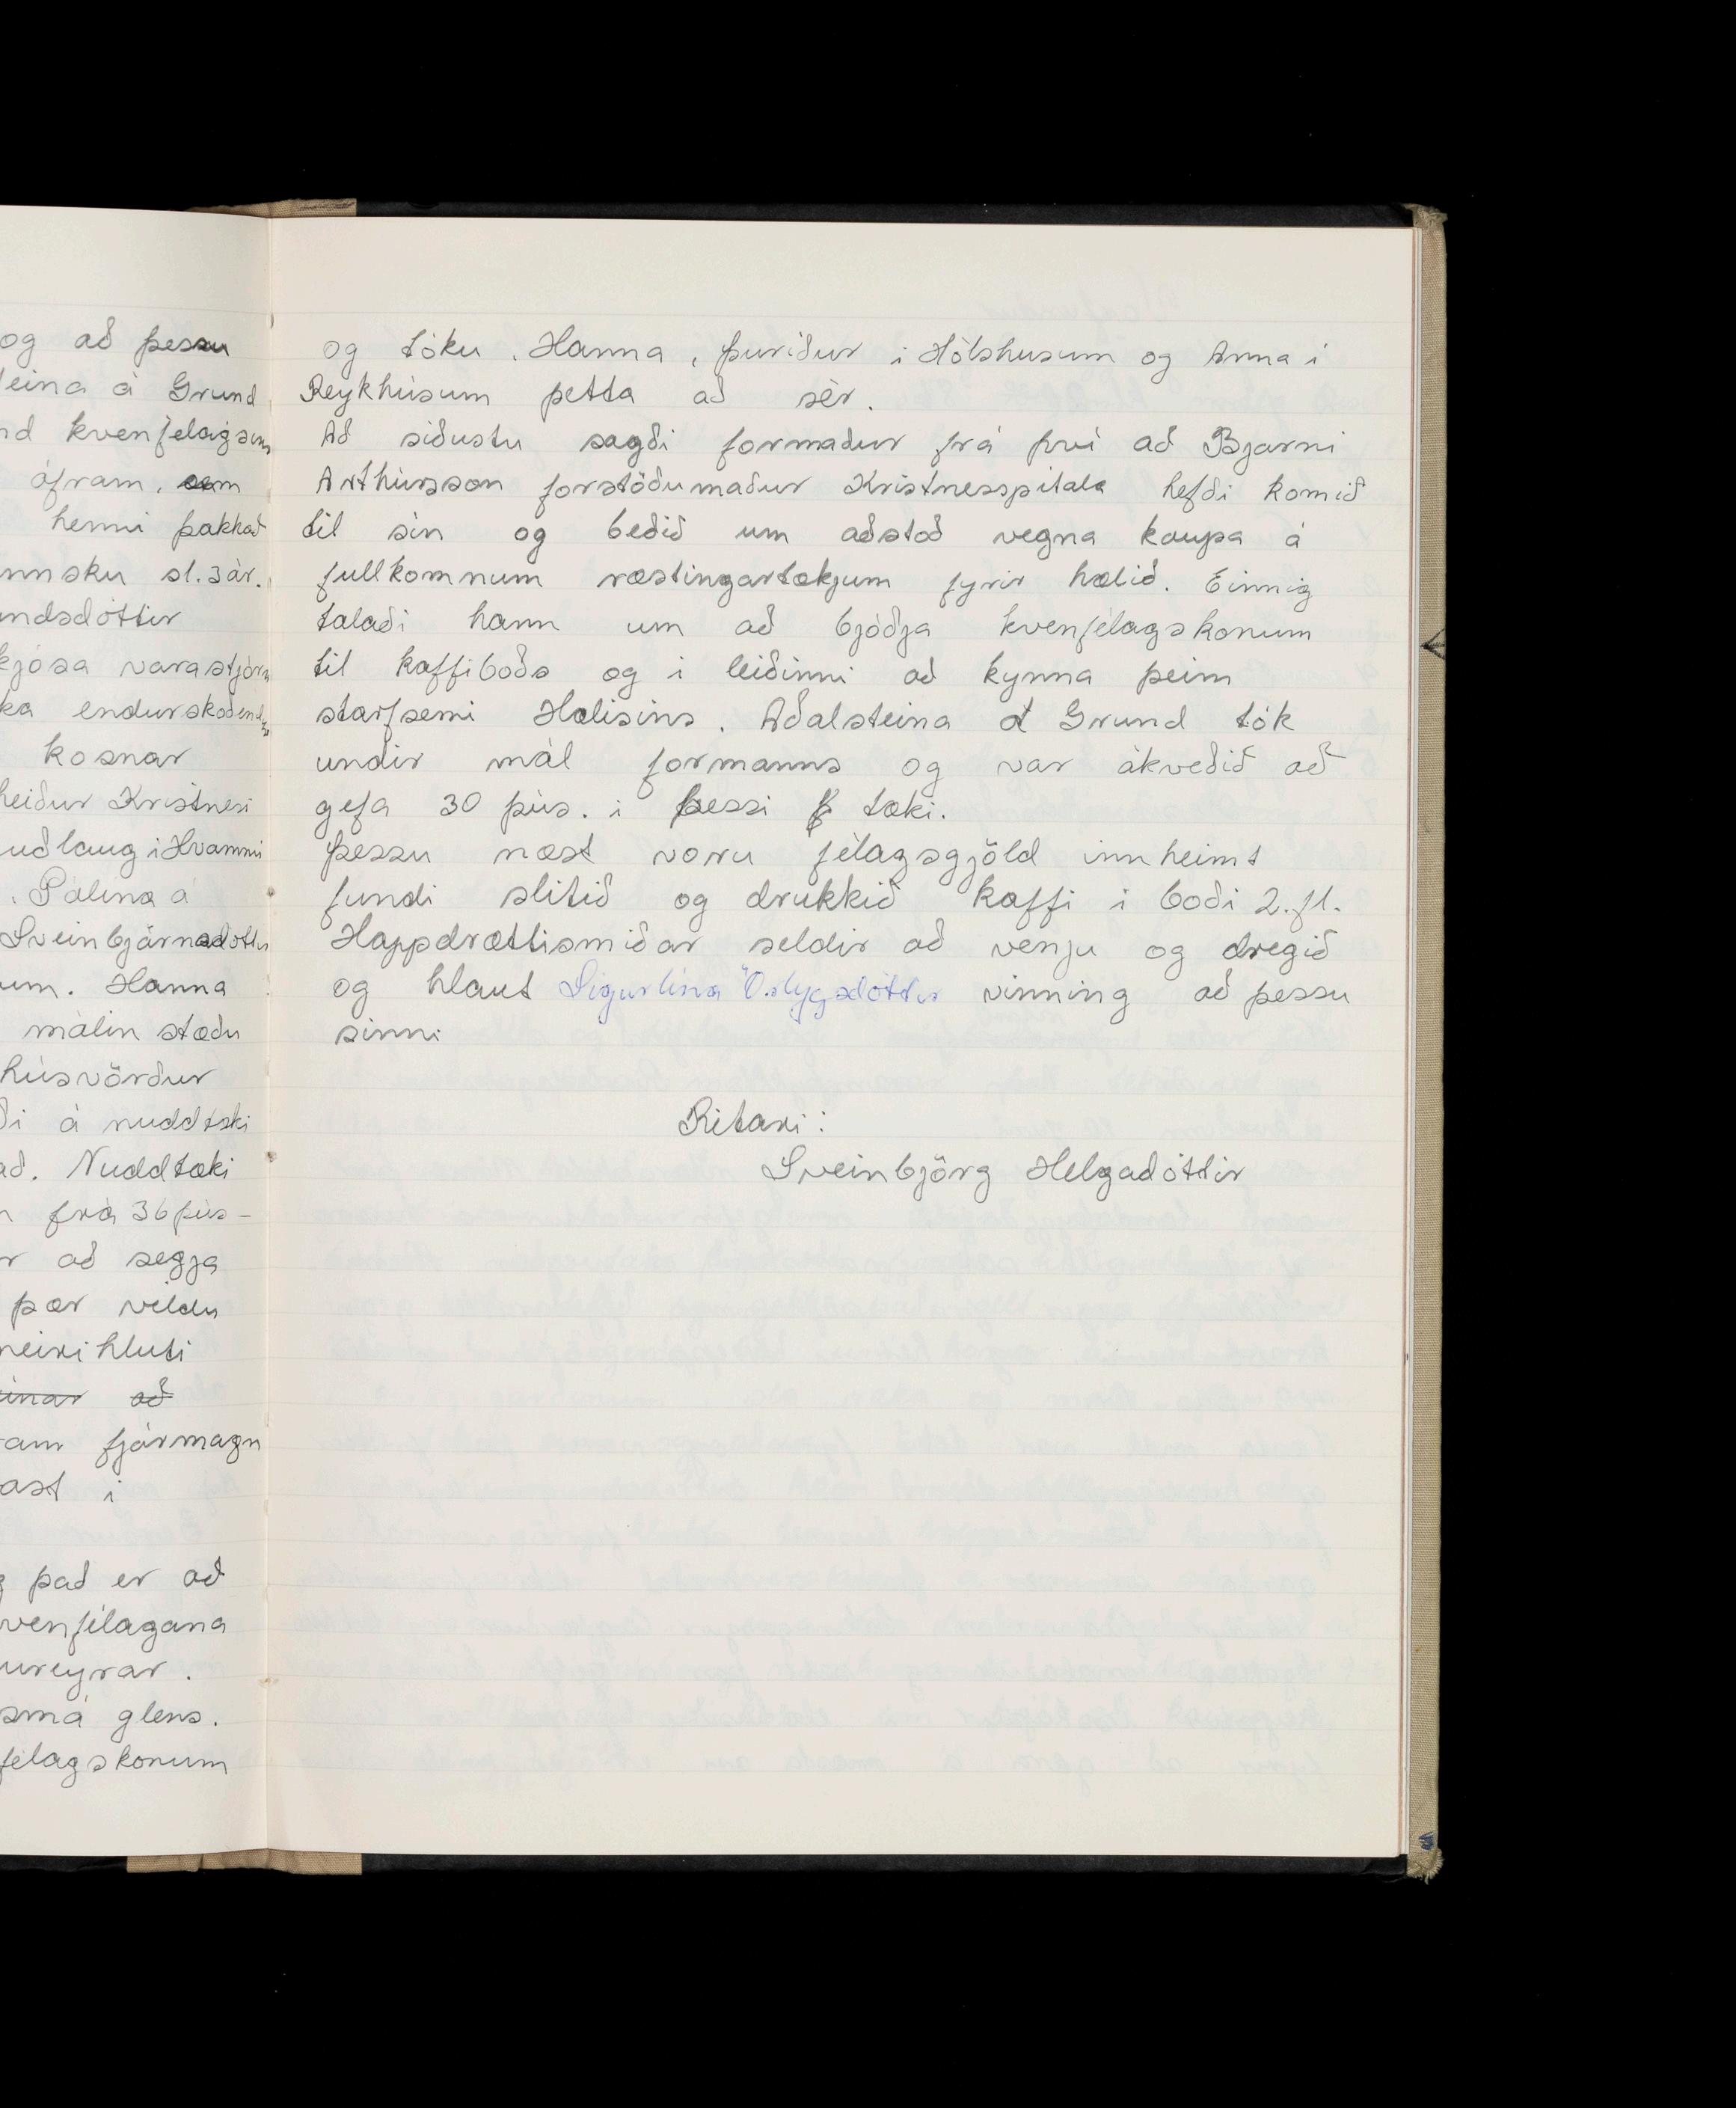 og að þessu
leina á Grund
nd kvenfelagsins
áfram, sem
henni þakkað
nnsku sl. 3 ár.
undsdóttir
kjósa varastjórn
ka endurskoðendur
kosnar
heiður Kristnesi
uðlaug í Hvammi
. Pálína á
Sveinbjarnadóttir
um. Hanna
málin stæðu
húsvörður
ði á nuddtæki
að. Nuddtæki
n frá 36 þús-
r að segja
þær vildu
meirihluti
inar að
am fjármagn
ast í
g það er að
venfélagana
ureyrar.
smá glens.
félagskonum
og tóku. Hanna, þuríður í Hólshusum og Anna í
Reykhúsum þetta að sér.
Að síðustu sagði formaður frá því að Bjarni
Arthúrsson forstöðumaður Kristnesspítala hefði komið
til sín og beðið um aðstoð vegna kaupa á
fullkomnum ræstingartækjum fyrir hælið. Einnig
talaði hann um að bjóðja kvenfélagskonum
til kaffiboðs og í leiðinni að kynna þeim
starfsemi Hælisins. Aðalsteina á Grund tók
undir mál formanns og var ákveðið að
gefa 30 þús. í þessi tæki.
Þessu næst voru félagsgjöld innheimt
fundi slitið og drukkið kaffi í boði 2. fl.
Happdrættismiðar seldir að venju og dregið
og hlaut Sigurlína Öslygsdóttir vinning að þessu
sinni
Ritari:
Sveinbjörg Helgadóttir